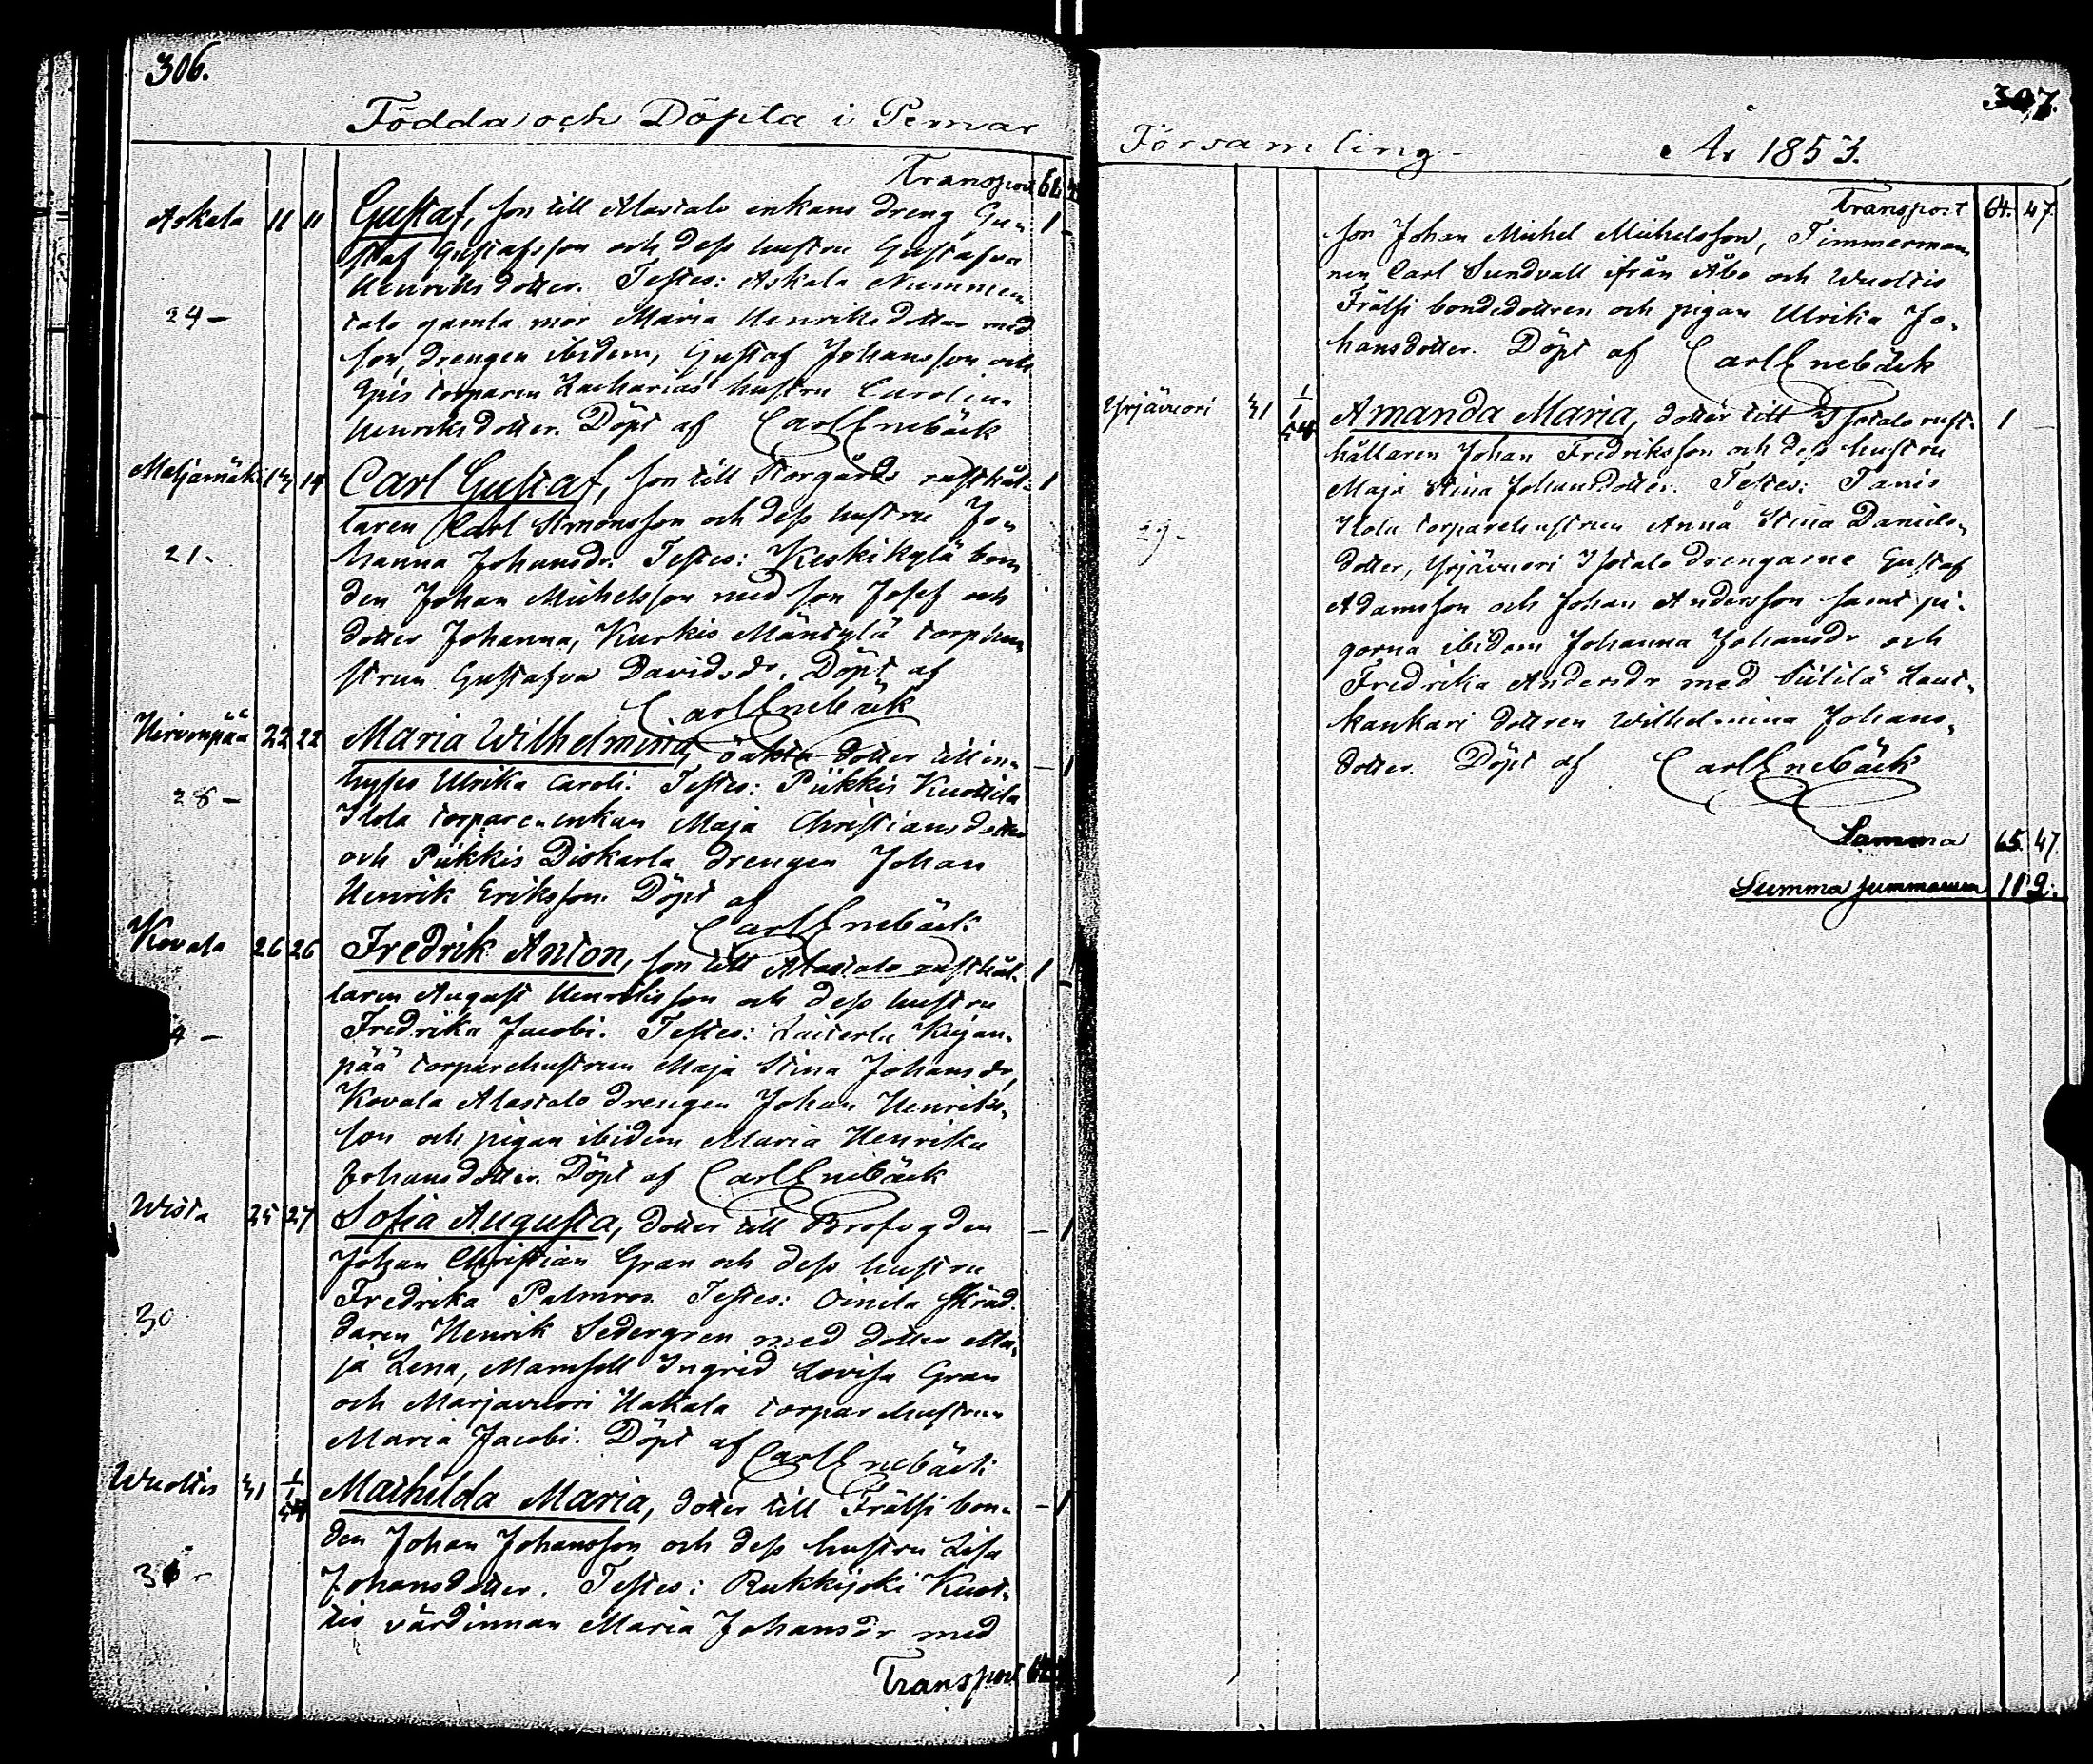 306.
Födda och Döpta i Pemar
Transport
Askala 11 11 Gustaf, son till Alastalo enkans dreng Gu- 1 -
staf Gustafsson och dess hustru Gustafva
Henriksdotter. Testes: Askala Nummen
24 - talo gamla mor Maria Henriksdotter med
son, drengen ibidem, Gustaf Johansson och
torparen Zacharias hustru Carolina
Henriksdotter. Döpt af Carl Enebäck
Meljamäki 13 14 Carl Gustaf, son till Storgårds rusthål- 1
laren Carl Simonsson och dess hustru Jo-
21. hanna Johansdr. Testes: Keskikylä bon
den Johan Michelsson med son Josef och
dotter Johanna, Kurkis Mäntylä torphu
strun Gustafva Davidsdr. Döpt af
Carl Enebäck
Hirvonpää 22 22 Maria Wilhelmina, oäkta dotter till in- - 1
hyses Ulrika Caroli. Testes: Piikkis Kuottila
28 - Ilola torpare-enkan Maja Christiansdotter
och Piikkis Diskarla drengen Johan
Henrik Eriksson. Döpt af
Carl Enebäck
Kevola 26 26 Fredrik Anton, son till Alastalo rusthål- 1 -
laren August Henriksson och dess hustru
4 - Fredrika Jacobi. Testes: Kujan-
pää torparehustrun Maja Stina Johansdr,
Kevola Alastalo drengen Johan Henriks-
son och pigan ibidem Maria Henrika
Johansdotter. Döpt af Carl Enebäck
Wista 25 27 Sofia Augusta, dotter till Brofogden - 1
Johan Christian Gran och dess hustru
Fredrika Palmros. Testes: Oinila skräd-
30 daren Henrik Sedergren med dotter Ma-
ja Lena, Mamsell Ingrid Lovisa Gran
och Marjavuori Hakala torparehustrun
Maria Jacobi. Döpt af Carl Enebäck
Wuoltis 31 1/1 54 Mathilda Maria, dotter till Frälse bon- - 1
den Johan Johansson och dess hustru Lisa
Johansdotter. Testes: Rukkijoki Kuot-
tis värdinnan Maria Johansdr med
Transport
307.
Församling - År 1853.
Transport 64. 47.
son Johan Michel Michelsson, Timmerman-
nen Carl Sundvall ifrån Åbo och Wuoltis
Frälse bondedottren och pigan Ulrika Jo-
hansdotter. Döpt af Carl Enebäck
Yrjävuori 31 1/1 54 Amanda Maria, dotter till Isotalo rust- 1 -
hållaren Johan Fredriksson och dess hustru
Maja Stina Johansdotter. Testes: Tanis
29 - Ilola torparehustrun Anna Stina Daniels-
dotter, Yrjävuori Isotalo drengarne Gustaf
Adamsson och Johan Andersson samt pi-
gorna ibidem Johanna Johansdr och
Fredrika Andersdr med Siitilä Laut-
kankari dottren Wilhelmina Johans-
dotter. Döpt af Carl Enebäck
Summa 65. 47.
Summa summarum 112.